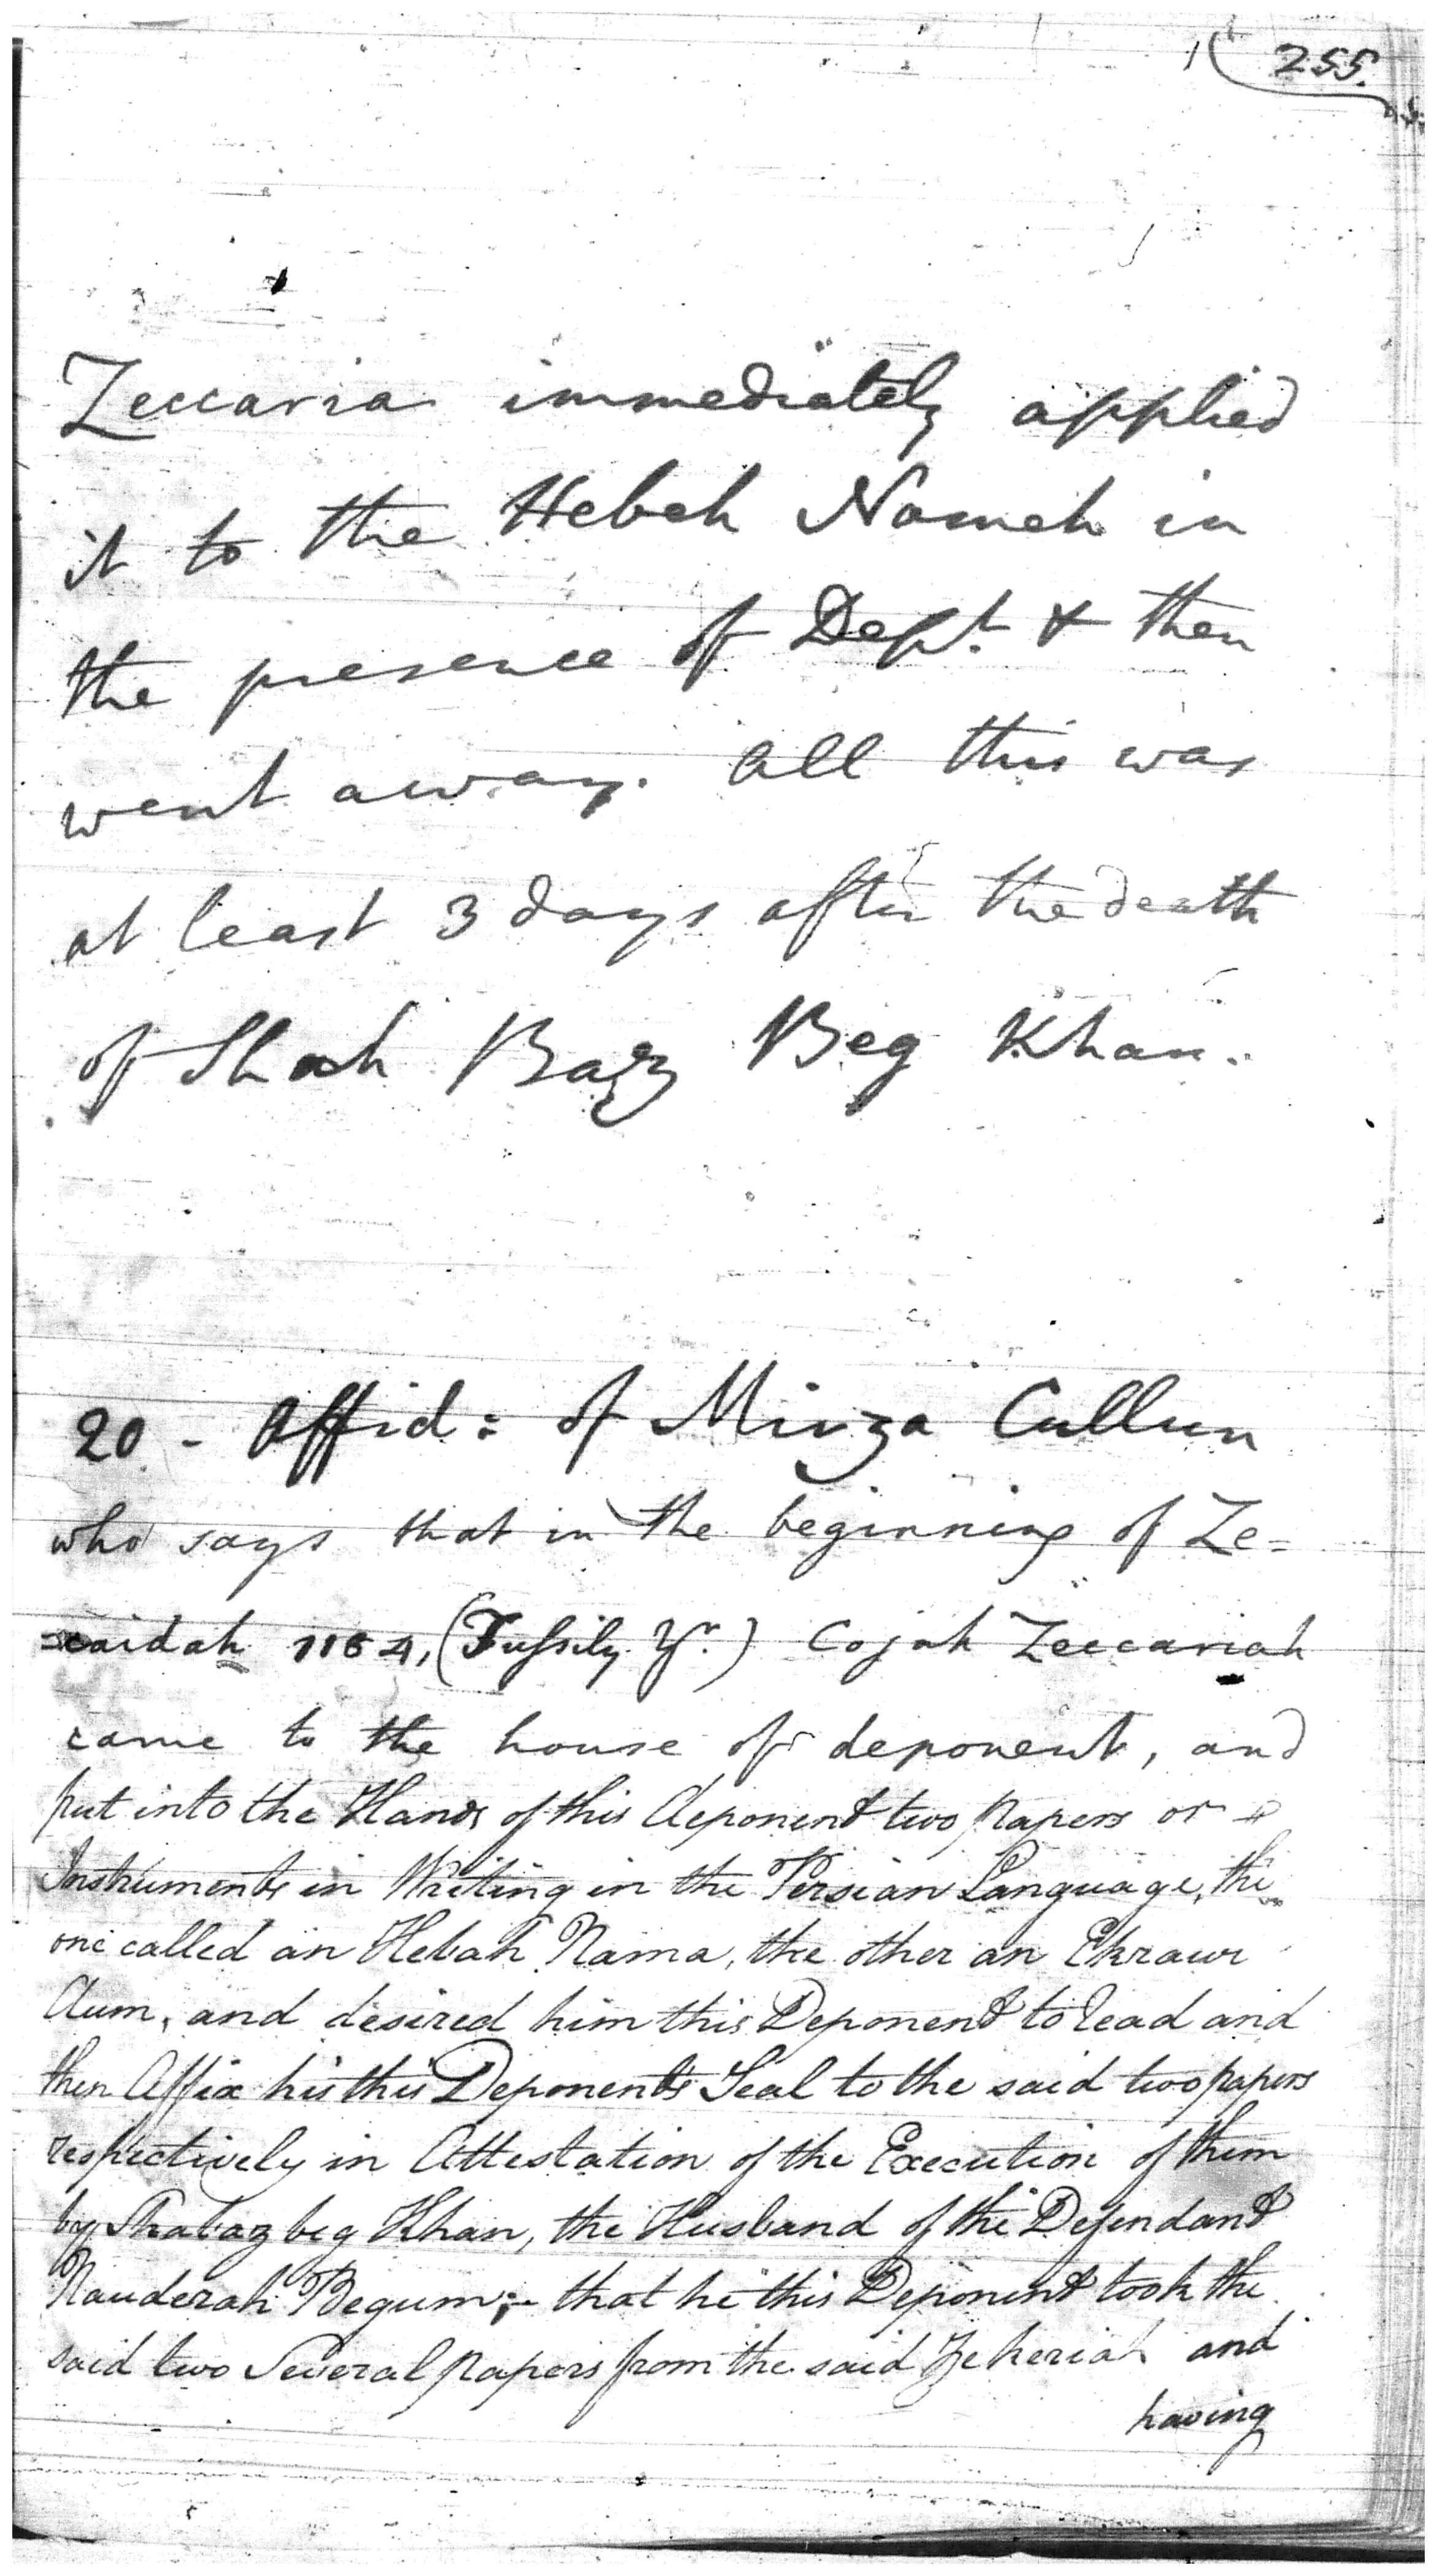 255.
Zeccaria immediately applied
it to the Hebeh Nameh in
the presence of Dept. & then
went away. All this was
at least 3 days after the death
of Shah Baz Beg Khan.
20 - Affid: of Mirza Cullun
who says that in the beginning of Ze=
=caidah 1184, (Fussily Yr.) Cojah Zeccariah
came to the house of deponent, and
put into the Hands of this deponent two papers or
Instruments in Writing in the Persian Language, the
one called an Hebah Nama, the other an Ekraur
Aum, and desired him this Deponent to read and
then Affix his this Deponents Seal to the said two papers
respectively in Attestation of the Execution of them
by Shabaz beg Khan, the Husband of the Defendant
Nauderah Begum; - that he this Deponent took the
said two Several papers from the said Zekeriah and
having